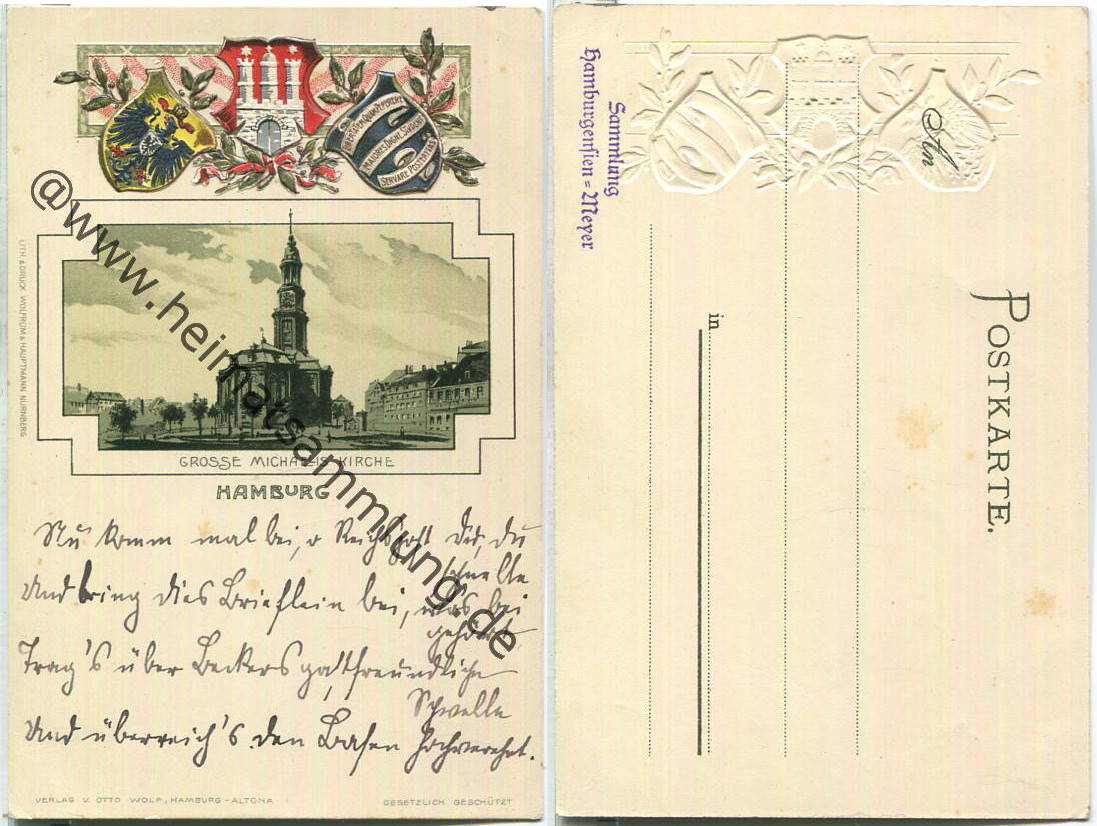 LIBERTATEM QUAM PEPERERE
MAIORES DIGNE STUDEAT
SERVARE POSTERITAS
@www.heimatsammlung.de
LITH. & DRUCK WOLFRUM & HAUPTMANN NÜRNBERG
GROSSE MICHAELIS KIRCHE
HAMBURG
Nu komm mal bei, o Reichspost du,
schnelle
Und bring dies Brieflein bei, was bei
gehört,
Trag's über Beckers gastfreundliche
Schwelle
Und überreich's den Basen hochverehrt.
VERLAG V. OTTO WOLF, HAMBURG-ALTONA
GESETZLICH GESCHÜTZT
Sammlung
Hamburgensien=Meyer
An
POSTKARTE.
in